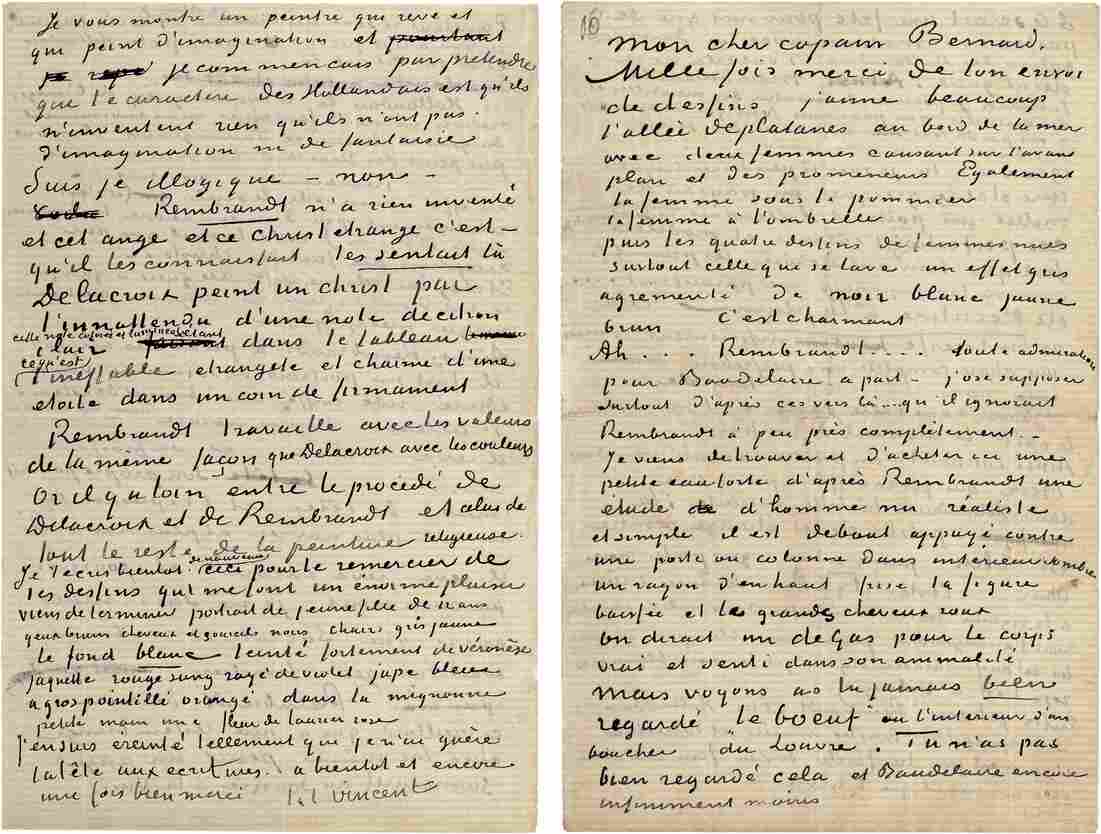 Je vous montre un peintre qui reve et
qui peint d'imagination et pourtant
je commencais par pretendre
que le caractère des Hollandais est qu'ils
n'inventent rien qu'ils n'ont pas.
d'imagination ni de fantaisie
Suis je illogique – non –
Rembrandt n'a rien inventé
et cet ange et ce christ etrange c'est –
qu'il les connaissait les sentait là
Delacroix peint un christ par
l'innattendu d'une note de citron
cette note colorée et lumineuse étant
clair dans le tableau
ce qu'est
l'ineffable etrangeté et charme d'une
etoile dans un coin de firmament
Rembrandt travaille avec les valeurs
de la même façon que Delacroix avec les couleurs
Or il y a loin entre le procédé de
Delacroix et de Rembrandt et celui de
tout le reste de la peinture religieuse.
de nouveau
Je t'ecris bientot ceci pour te remercier de
tes dessins qui me font un énorme plaisir
viens de terminer portrait de jeune fille de 12 ans
yeux bruns cheveux et sourcils noirs chairs gris jaune
le fond blanc teinté fortement de véronèse
jaquette rouge sang rayé de violet jupe bleue
a gros pointillé orangé dans la mignonne
petite main une fleur de laurier rose
J'en suis éreinté tellement que je n'ai guère
la tête aux ecritures. a bientot et encore
une fois bien merci t. à t. Vincent
16
mon cher copain Bernard.
Mille fois merci de ton envoi
de dessins j'aime beaucoup
l'allée de platanes au bord de la mer
avec deux femmes causant sur l'avant
plan et des promeneurs Egalement
la femme sous le pommier
la femme à l'ombrelle
puis les quatre dessins de femmes nues
surtout celle qui se lave un effet gris
agrementé de noir blanc jaune
brun c'est charmant
Ah . . . Rembrandt . . . . toute admiration
pour Baudelaire a part – j'ose supposer
surtout d'après ces vers là .... qu'il ignorait
Rembrandt à peu près complètement..–
Je viens de trouver et d'acheter ici une
petite eau forte d'après Rembrandt une
étude de d'homme nu réaliste
et simple il est debout appuyé contre
une porte ou colonne dans interieur sombre
un rayon d'en haut frise la figure
baissée et les grands cheveux roux
On dirait un deGas pour le corps
vrai et senti dans son animalité
Mais voyons as tu jamais bien
regardé "le boeuf" ou l'interieur d'un
boucher du Louvre. Tu n'as pas
bien regardé cela et Baudelaire encore
infiniment moins